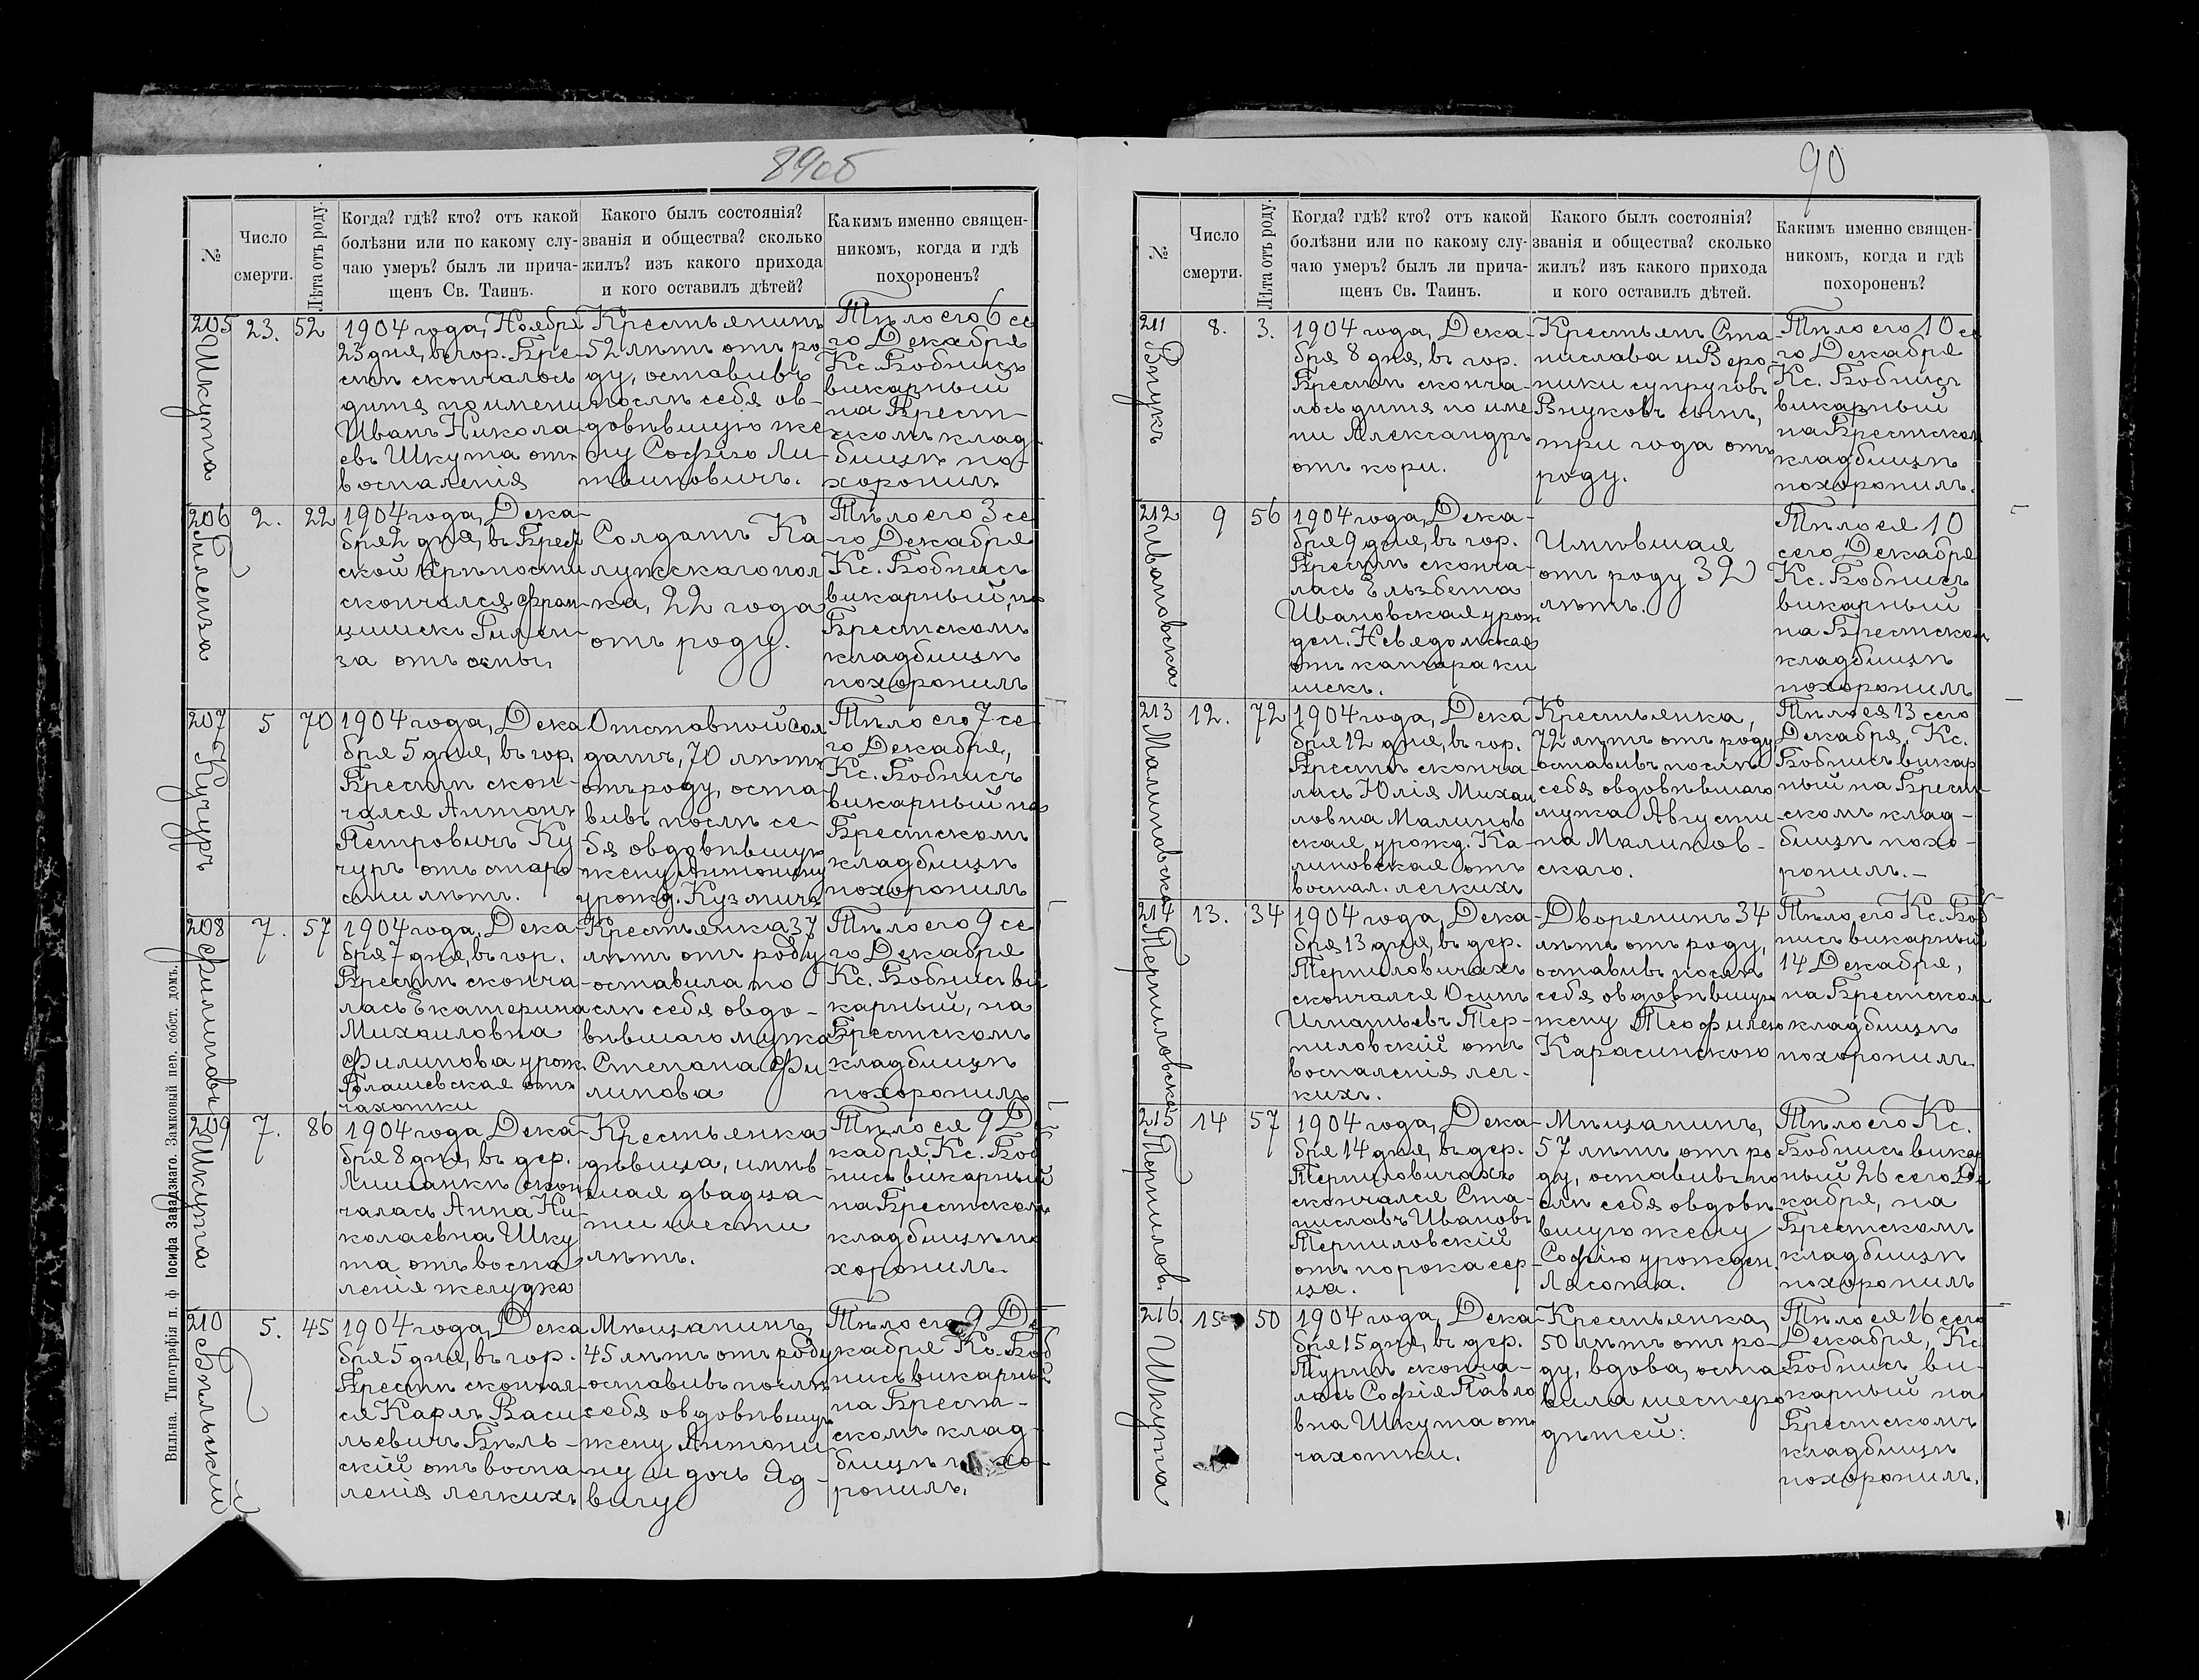 89об
№
Число
смерти.
Лѣта отъ роду.
Когда? гдѣ? кто? отъ какой
болѣзни или по какому слу-
чаю умеръ? былъ ли прича-
щенъ Св. Таинъ.
Какого былъ состоянія?
званія и общества? сколько
жилъ? изъ какого прихода
и кого оставилъ дѣтей?
Какимъ именно священ-
никомъ, когда и гдѣ
похороненъ?
205
Шкута
23.
52
1904 года, Ноября
23 дня, въ гор. Бре-
стѣ скончалось
дитя по имени
Иванъ Никола-
евъ Шкута отъ
воспаленія
Крестьянинъ
52 лѣтъ отъ ро
ду, оставивъ
послѣ себя ов-
довѣвшую же
ну Софію Ли-
твиновичъ.
Тѣло его 6 се
го Декабря
Кс. Бобнисъ
викарный
на Брест-
скомъ клад-
бищѣ по-
хоронилъ
206
Гиленза
2.
22
1904 года, Дека-
бря 2 дня, въ Брест
ской Крѣпости
скончался Фран-
цишекъ Гилен-
за отъ оспы
Солдатъ Ка
лужскаго пол
ка, 22 года
отъ роду.
Тѣло его 3 се
го Декабря
Кс. Бобнисъ
викарный, на
Брестскомъ
кладбищѣ
похоронилъ
207
Кучуръ
5
70
1904 года, Дека
бря 5 дня, въ гор.
Брестѣ скон-
чался Антонъ
Петровичъ Ку
чуръ отъ старо
сти лѣтъ.
Отставной сол
датъ, 70 лѣтъ
отъ роду, оста
вивъ послѣ се-
бя овдовѣвшую
жену Антонину
урожд. Кузмичъ
Тѣло его 7 се
го Декабря,
Кс. Бобнисъ
викарный на
Брестскомъ
кладбищѣ
похоронилъ
208
Филиповъ
7.
57
1904 года, Дека-
бря 7 дня, въ гор.
Брестѣ сконча
лась Екатерина
Михаиловна
Филипова урож.
Голашевская отъ
чахотки
Крестьянка 37
лѣтъ отъ роду
оставила по
слѣ себя овдо-
вѣвшаго мужа
Степана Фи
липова
Тѣло его 9 се
го Декабря
Кс. Бобнисъ ви
карный, на
Брестскомъ
кладбищѣ
похоронилъ
209
Шкута
7.
86
1904 года Дека-
бря 8 дня, въ дер.
скон
чалась Анна Ни-
колаевна Шку
та отъ воспа
ленія желудка
Крестьянка
дѣвица, имѣв
шая двадца-
ти шести
лѣтъ.
Тѣло ея 9 Де
кабря, Кс. Боб
нисъ викарный
на Брестскомъ
кладбищѣ по
хоронилъ.
210
Бѣльскій
5.
45
1904 года, Дека
бря 5 дня, въ гор.
Брестѣ скончал-
ся Карлъ Васи
льевичъ Бѣль-
скій отъ воспа
ленія легкихъ
Мѣщанинъ,
45 лѣтъ отъ роду
оставивъ послѣ
себя овдовѣвшую
жену Антони
ну и дочь Яд-
вигу
Тѣло его 9 Де
кабря Кс. Боб
нисъ викарный
на Брест-
скомъ клад-
бищѣ похо-
ронилъ.
Вильна. Типографія п. ф. Іосифа Завадзкаго. Замковый пер. собст. домъ.
90
№
Число
смерти.
Лѣта отъ роду.
Когда? гдѣ? кто? отъ какой
болѣзни или по какому слу-
чаю умеръ? былъ ли прича-
щенъ Св. Таинъ.
Какого былъ состоянія?
званія и общества? сколько
жилъ? изъ какого прихода
и кого оставилъ дѣтей.
Какимъ именно священ-
никомъ, когда и гдѣ
похороненъ?
211
Внукъ
8.
3.
1904 года, Дека-
бря 8 дня, въ гор.
Брестѣ сконча-
лось дитя по име
ни Александръ
отъ кори.
Крестьянъ Ста-
нислава и Веро-
ники супруговъ
Внуковъ сынъ,
три года отъ
роду.
Тѣло его 10 се
го Декабря
Кс. Бобнисъ
викарный
на Брестском
кладбищѣ
похоронилъ.
212
Ивановска
9
56
1904 года, Дека-
бря 9 дня, въ гор.
Брестѣ сконча-
лась Ельзбета
Ивановская урож
ден. Невядомская
отъ катара ки
шекъ.
Имѣвшая
отъ роду 32
лѣтъ.
Тѣло ея 10
сего Декабря
Кс. Бобнисъ
викарный
на Брестском
кладбищѣ
похоронилъ
213
Малиновска
12.
72
1904 года, Дека
бря 12 дня, въ гор.
Брестѣ сконча
лась Юлія Михаи
ловна Малинов
ская, урожд. Ка-
линовская отъ
воспал. легкихъ
Крестьянка,
72 лѣтъ отъ роду,
оставивъ послѣ
себя овдовѣвшаго
мужа Августи
на Малинов-
скаго.
Тѣло ея 13 сего
Декабря, Кс.
Бобнисъ викар
ный на Брест-
скомъ клад-
бищѣ похо-
ронилъ.-
214
Терпиловске
13.
34
1904 года, Дека-
бря 13 дня, въ дер.
Терпиловичахъ
скончался Осипъ
Игнатьевъ Тер-
пиловскій отъ
воспаленія лег-
кихъ.
Дворянинъ 34
лѣтъ отъ роду,
оставивъ послѣ
себя овдовѣвшую
жену Теофилю
Карасинскою
Тѣло его Кс. Боб
нисъ викарный
14 Декабря,
на Брестском
кладбищѣ
похоронилъ.
215
Терпиловъ
14
57
1904 года, Дека-
бря 14 дня, въ дер.
Терпиловичахъ
скончался Ста-
ниславъ Ивановъ
Терпиловскій
отъ порока сер-
ца.
Мѣщанинъ,
57 лѣтъ отъ ро
ду, оставивъ по
слѣ себя овдовѣ-
вшую жену
Софію урожден.
Лясота.
Тѣло его Кс.
Бобнисъ викар
ный 26 сего Де
кабря, на
Брестскомъ
кладбищѣ
похоронилъ
216.
Шкута
15
50
1904 года, Дека-
бря 15 дня, въ дер.
Турнѣ сконча-
лась Софія Павло
вна Шкута отъ
чахотки.
Крестьянка,
50 лѣтъ отъ ро-
ду, вдова, оста
вила шестеро
дѣтей:
Тѣло ея 16 сего
Декабря, Кс
Бобнисъ ви-
карный на
Брестскомъ
кладбищѣ
похоронилъ.